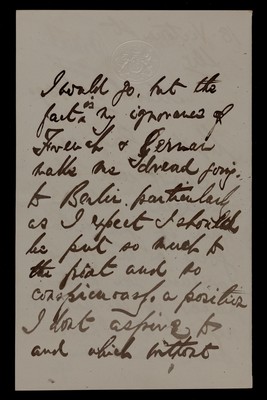 I would go, but the
fact is my ignorance of
French & German
make me dread going
to Berlin particularly
as I expect I should
be put so much to
the front and so
conspicuously, a position
I dont aspire to
and which without